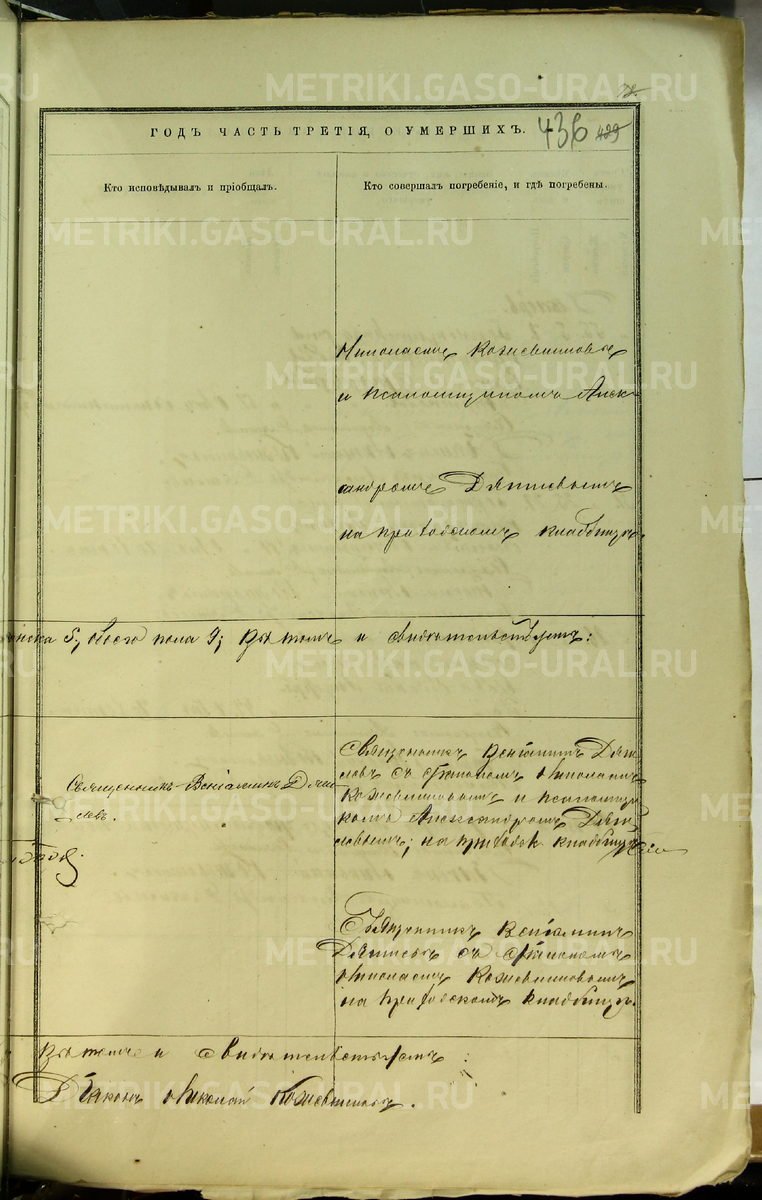 72.
ГОДЪ ЧАСТЬ ТРЕТІЯ, О УМЕРШИХЪ.
436 429
Кто исповѣдывалъ и пріобщалъ.
Кто совершалъ погребеніе, и гдѣ погребены.
METRIKI.GASO-URAL.RU
Николаемъ Кожевниковы
и псаломщикомъ Алек
сандромъ Дягилевымъ
на приходскомъ кладбищѣ.
5; обоего пола 9; въ томъ и свидѣтельствуемъ:
Священникъ Веніаминъ Дяги
левъ.
Священникъ Веніаминъ Дяги
левъ съ діакономъ Николаемъ
Кожевниковымъ и псаломщи
комъ Александромъ Дяги
левымъ; на приходск кладбищѣ
Священникъ Веніаминъ
Дягилевъ съ діакономъ
Николаемъ Кожевниковымъ
на приходскомъ кладбищѣ.
въ томъ и свидѣтельствуемъ:
Діаконъ Николай Кожевниковъ.